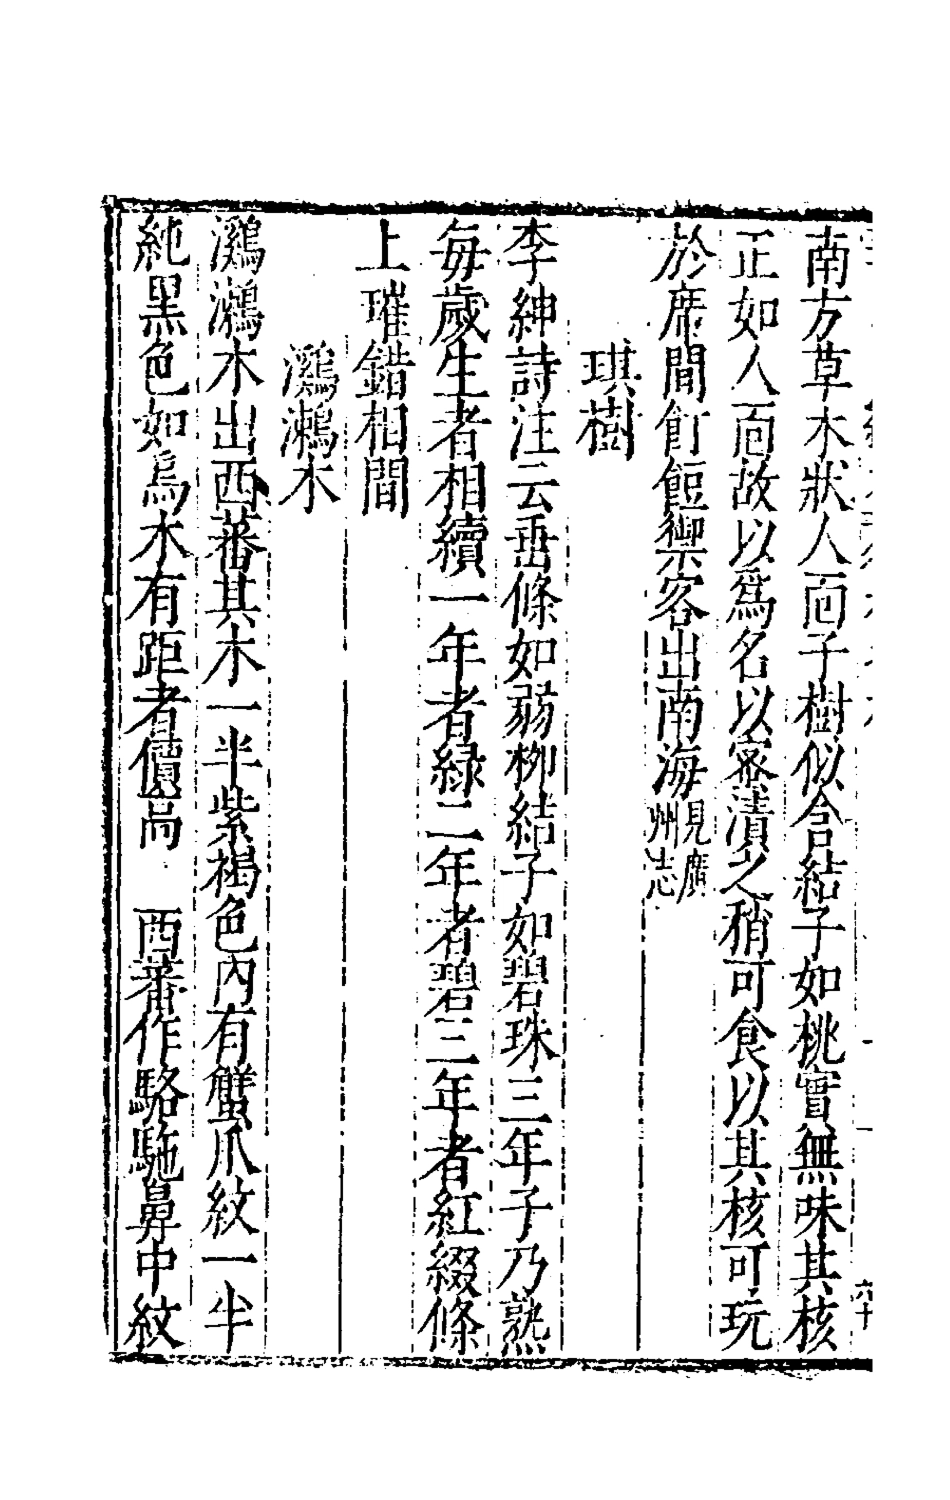 南方草木狀人面子樹似含結子如桃實無味其核
正如人面故以爲名以密漬之稍可食以其核可玩
於席間飣餖禦客出南海見廣州志
琪樹
李紳詩注云垂條如弱柳結子如碧珠三年子乃熟
每歲生者相續一年者綠二年者碧三年者紅綴條
上璀錯相間
鸂鶒木
鸂鶒木出西蕃其木一半紫褐色內有蟹爪紋一半
純黑色如烏木有距者價高 西蕃作駱駞鼻中紋
六十